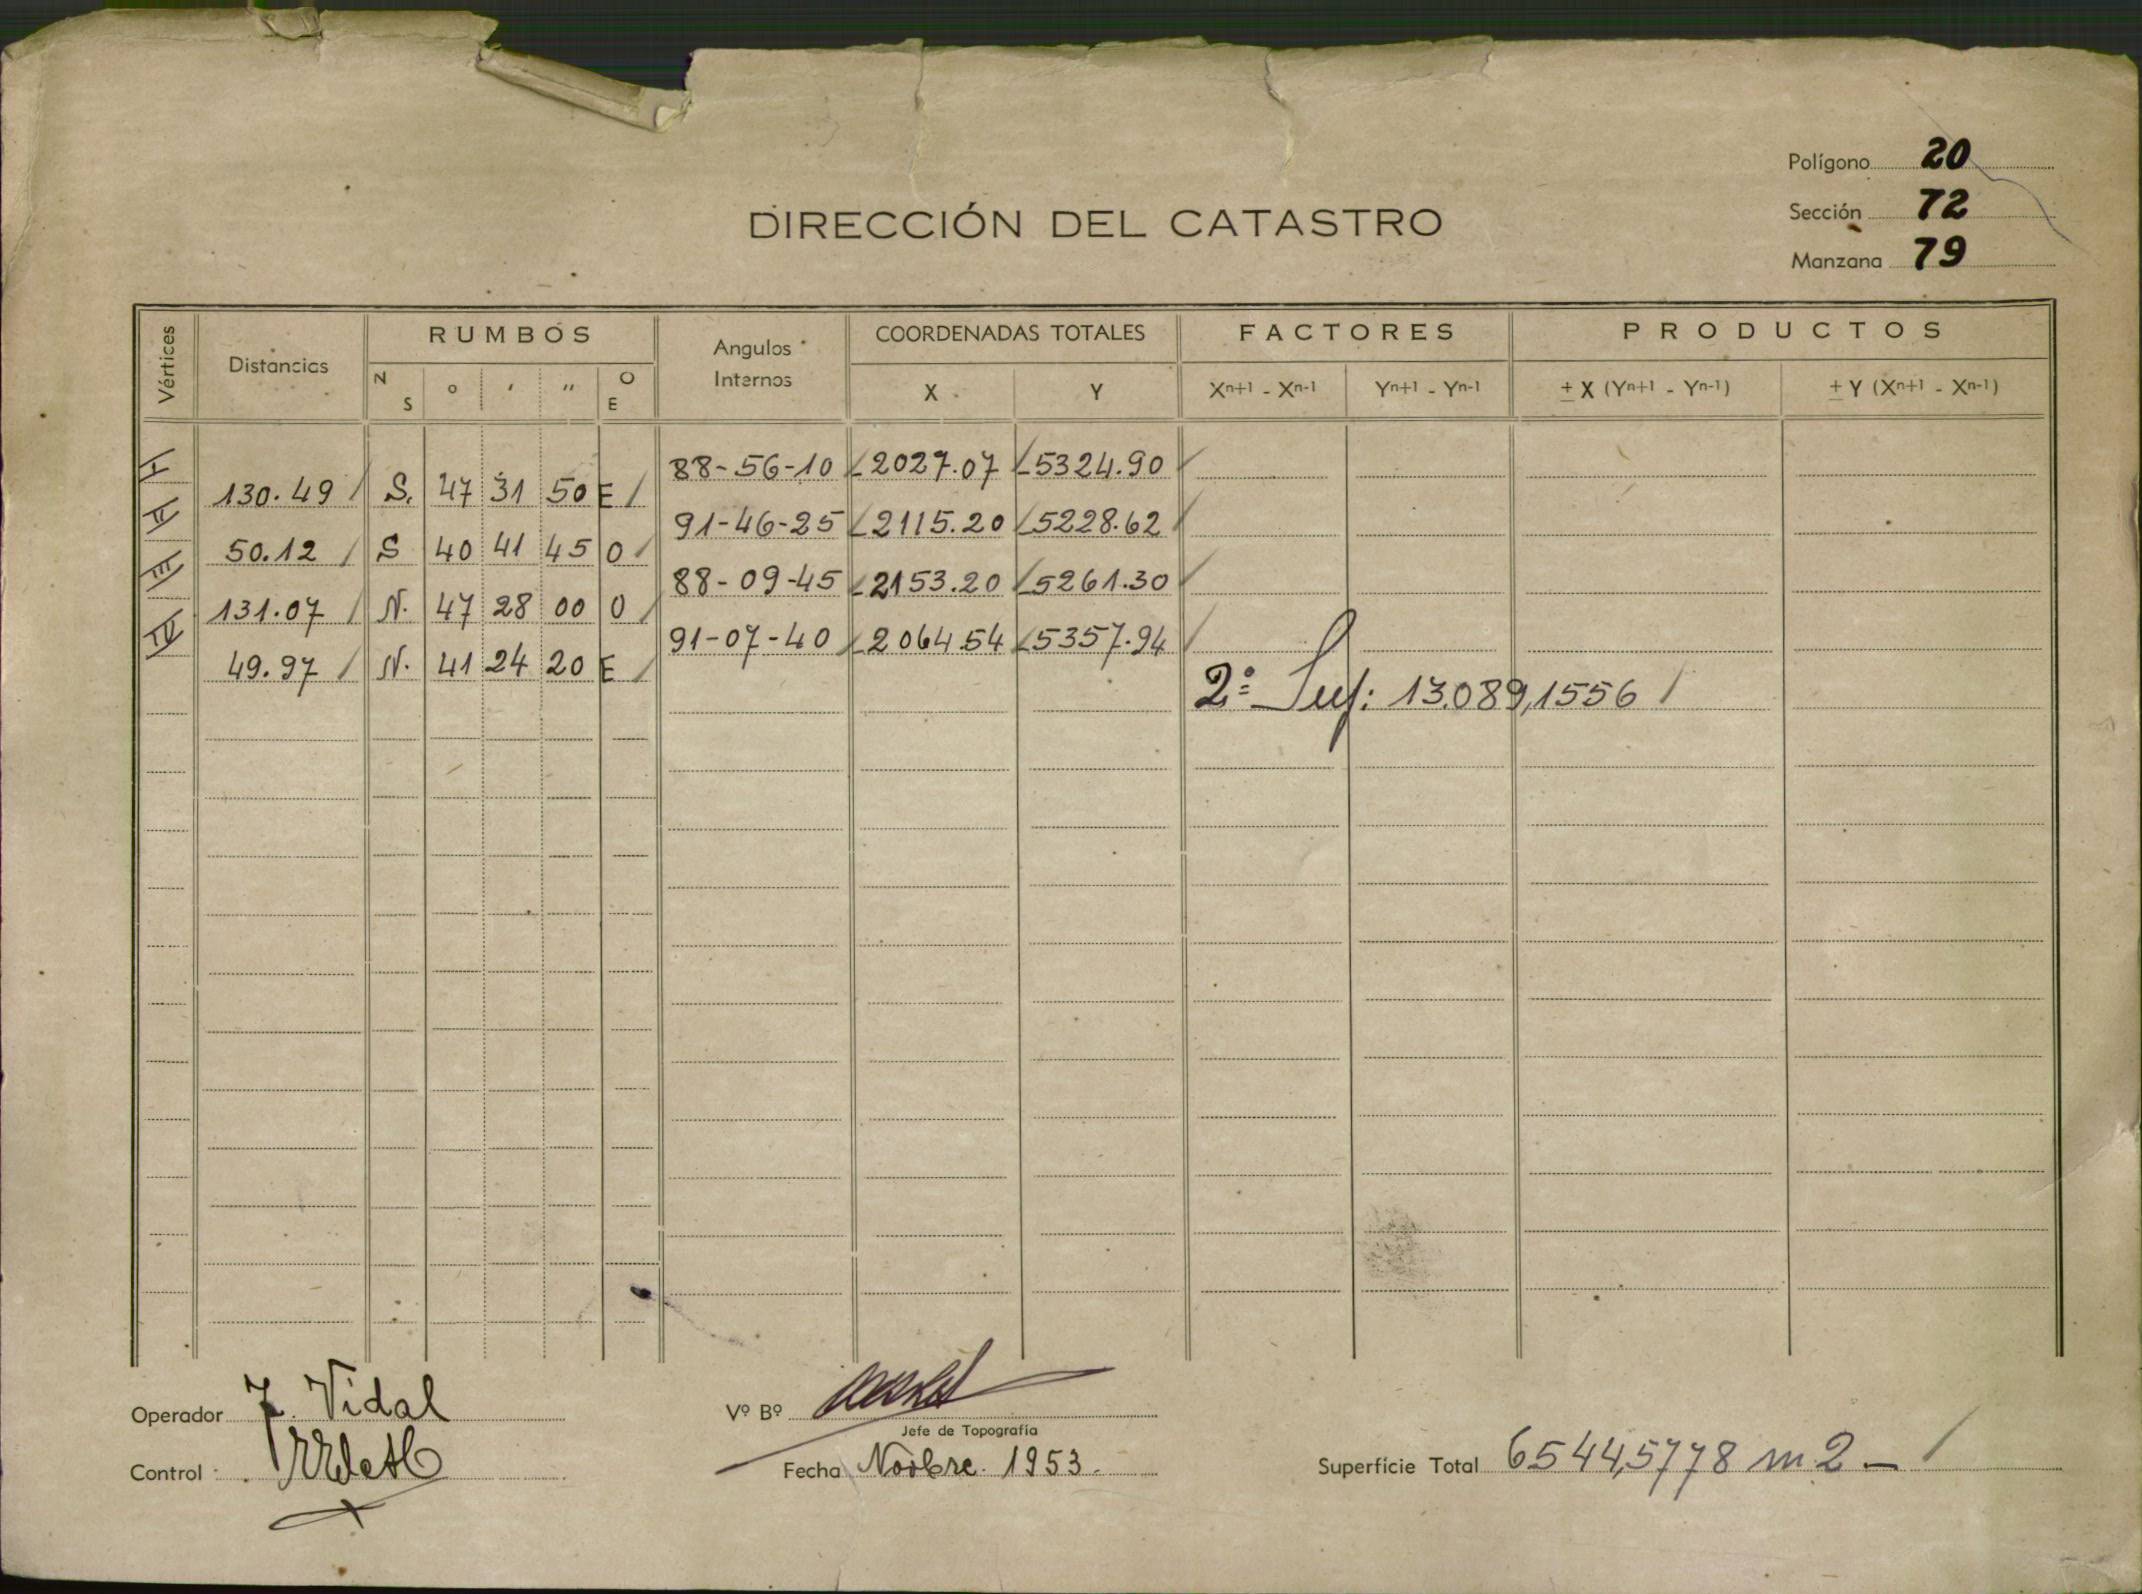 Polígono 20
Sección 72
Manzana 79
DIRECCIÓN DEL CATASTRO
Vértices Distancias RUMBOS Angulos Internos COORDENADAS TOTALES FACTORES PRODUCTOS
N S ° ' " O E X Y Xn+1 - Xn-1 Yn+1 - Yn-1 ± X (Yn+1 - Yn-1) ± Y (Xn+1 - Xn-1)
I 88-56-10 -2027.07 -5324.90
130.49 S. 47 31 50 E
II 91-46-25 -2115.20 -5228.62
50.12 S 40 41 45 O
III 88-09-45 -2153.20 -5261.30
131.07 N. 47 28 00 O
IV 91-07-40 -2064.54 -5357.94
49.97 N. 41 24 20 E
2º Sup: 13.089,1556
Operador J. Vidal
Control
Vº Bº
Jefe de Topografía
Fecha Novbre. 1953.
Superficie Total 6544,5778 m2 —